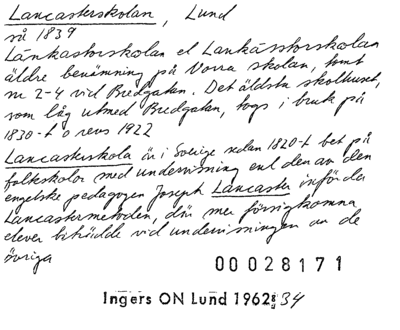 Lancasterskolan, Lund
så 1839
Länkastorskolan el Lankasstorskolan
äldre benämning på Vorra skolan, tomt
nr 2-4 vid Bredgatan. Det äldsta skolhuset,
som låg utmed Bredgatan, togs i bruk på
1830-t o revs 1922
Lancasterskola är i Sverige sedan 1820-t bet på
folkskolor med undervisning enl den av den
engelske pedagogen Joseph Lancaster införda
Lancastermetoden, där mer försigkomna
elever biträdde vid undervisningen av de
övriga
00028171
Ingers ON Lund 1962 s 34